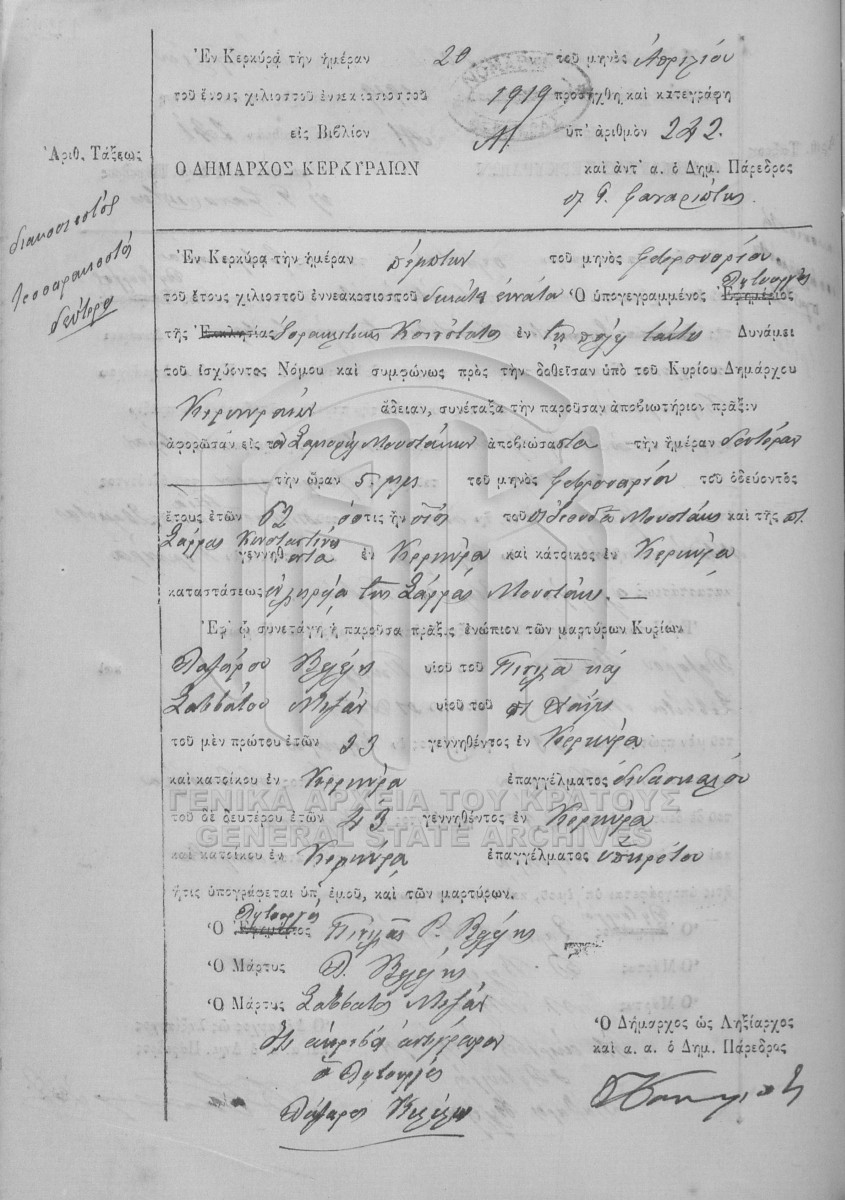 Ἐν Κερκύρᾳ τὴν ἡμέραν 20 τοῦ μηνὸς Ἀπριλίου
τοῦ ἔτους χιλιοστοῦ ἐννεακοσιοστοῦ 1919 προσήχθη καὶ κατεγράφη
εἰς Βιβλίον Μ ὑπ' ἀριθμὸν 242.
Ἀριθ. Τάξεως
Ο ΔΗΜΑΡΧΟΣ ΚΕΡΚΥΡΑΙΩΝ καὶ ἀντ' α. ὁ Δημ. Πάρεδρος
διακοσιοστὸς
τεσσαρακοστὸς
δεύτερα
Ἐν Κερκύρᾳ τὴν ἡμέραν πέμπτην τοῦ μηνὸς φεβρουαρίου
τοῦ ἔτους χιλιοστοῦ ἐννεακοσιοστοῦ δεκάτου ἐννάτου Ὁ ὑπογεγραμμένος Ἐφημέριος Λητουργὸς
τῆς Ἐκκλησίας Ἰσραηλιτικῆς Κοινότητος ἐν τῇ πόλει ταύτῃ Δυνάμει
τοῦ ἰσχύοντος Νόμου καὶ συμφώνως πρὸς τὴν δοθεῖσαν ὑπὸ τοῦ Κυρίου Δημάρχου
Κερκυραίων ἄδειαν, συνέταξα τὴν παροῦσαν ἀποβιωτήριον πρᾶξιν
ἀφορῶσαν εἰς τὸν Σαμουὴλ Μουστάκην ἀποβιώσαντα τὴν ἡμέραν δευτέραν
τὴν ὥραν 5 μ.μ. τοῦ μηνὸς φεβρουαρίου τοῦ ὁδεύοντος
ἔτους ἐτῶν 62 ὅστις ἦν υἱὸς τοῦ Μουστάκη καὶ τῆς π.
Σάρρας Κωνσταντίνη
γεννηθέντα ἐν Κερκύρᾳ καὶ κάτοικος ἐν Κερκύρᾳ
καταστάσεως τῆς Σάρρας Μουστάκη.
Ἐφ' ᾧ συνετάγη ἡ παροῦσα πρᾶξις ἐνώπιον τῶν μαρτύρων Κυρίων
Λαζάρου Βελέλη υἱοῦ τοῦ Πιπιλᾶ καὶ
Σαββάτου Μιζάν υἱοῦ τοῦ π. Χαΐμ
τοῦ μὲν πρώτου ἐτῶν 23 γεννηθέντος ἐν Κερκύρᾳ
καὶ κατοίκου ἐν Κερκύρᾳ ἐπαγγέλματος διδασκάλου
ΓΕΝΙΚΑ ΑΡΧΕΙΑ ΤΟΥ ΚΡΑΤΟΥΣ
τοῦ δὲ δευτέρου ἐτῶν 43 γεννηθέντος ἐν Κερκύρᾳ
GENERAL STATE ARCHIVES
καὶ κατοίκου ἐν Κερκύρᾳ ἐπαγγέλματος ὑπηρέτου
ἥτις ὑπογράφεται ὑπ' ἐμοῦ, καὶ τῶν μαρτύρων.
Ὁ Ἐφημέριος Λητουργὸς Πιπιλᾶς Ρ. Βελέλης
Ὁ Μάρτυς Λ. Βελέλης
Ὁ Μάρτυς Σαββάτος Μιζάν
Ὅτι ἀκριβὲς ἀντίγραφον
ὁ Λητουργὸς
Λάζαρος Βελέλης
Ὁ Δήμαρχος ὡς Ληξίαρχος
καὶ α. α. ὁ Δημ. Πάρεδρος